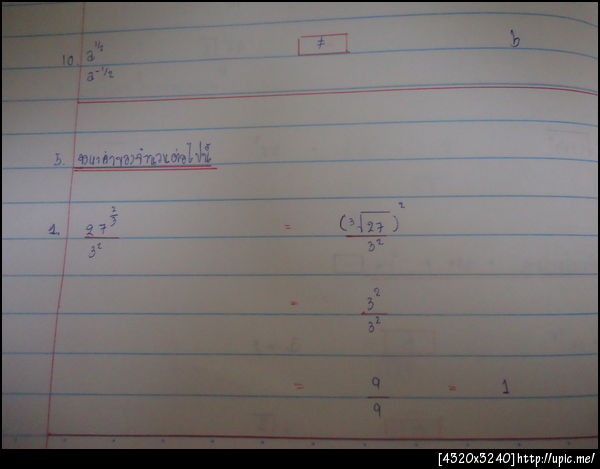 10. a^{1/2} / a^{-1/2} ≠ b
5. จงหาค่าของจำนวนต่อไปนี้
1. 27^{2/3} / 3^2 = (3√27)^2 / 3^2
= 3^2 / 3^2
= 9 / 9 = 1
[4320x3240]http://upic.me/